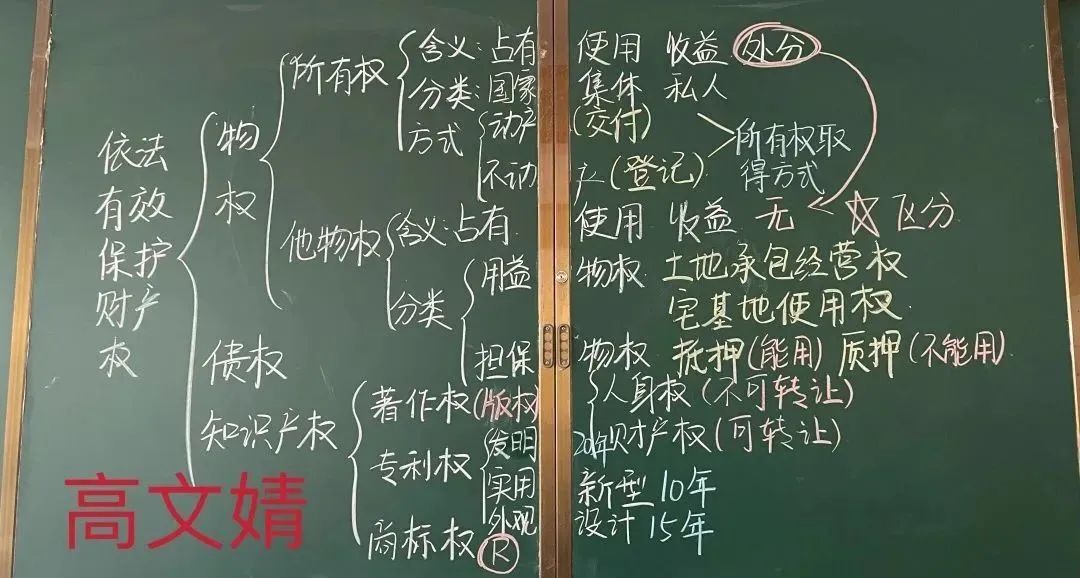 依法
有效
保护
财产
权
物
权
所有权
含义：占有 使用 收益 处分
分类：国家 集体 私人
方式
动产（交付）
不动产（登记）
所有权取
得方式
他物权
含义：占有 使用 收益 无 区分
分类
用益物权 土地承包经营权
宅基地使用权
担保物权 抵押（能用） 质押（不能用）
债权
知识产权
著作权（版权）
人身权（不可转让）
财产权（可转让）
专利权
发明 20年
实用新型 10年
外观设计 15年
商标权 R
高文婧